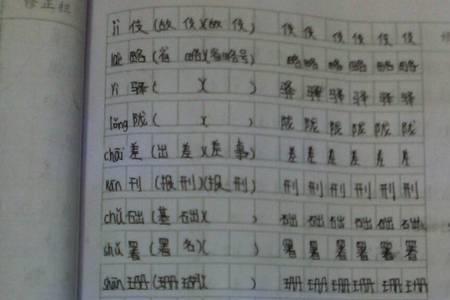 修正栏
jì 伎 (故 伎)(故 伎) 伎 伎 伎 伎 伎 伎
lüè 略 (省 略)(省略号) 略 略 略 略 略 略
yì 驿 ( )( ) 驿 驿 驿 驿 驿 驿
lǒng 陇 ( )( ) 陇 陇 陇 陇 陇 陇
chāi 差 (出 差)(差 事) 差 差 差 差 差 差
kān 刊 (报 刊)(报 刊) 刊 刊 刊 刊 刊 刊
chǔ 础 (基 础)( ) 础 础 础 础 础 础
shǔ 署 (署 名)( ) 署 署 署 署 署 署
shān 珊 (珊 珊)( ) 珊 珊 珊 珊 珊 珊